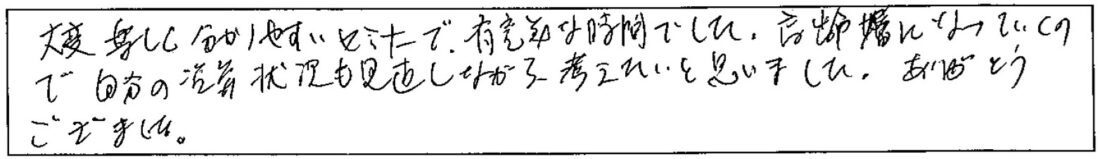 大変楽しく分かりやすいセミナーで、有意義な時間でした。高齢層になっていくの
で自分の資産状況も見直しながら考えたいと思いました。ありがとう
ございました。